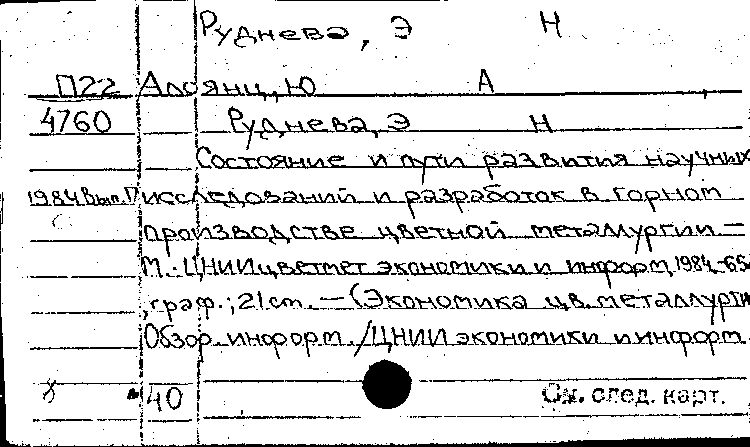 Руднева, Э Н
П22 Алоянц, Ю А
4760 Руднева, Э Н
Состояние и пути развития научних
1984 Вып. П исследований и разработок в горном
производстве цветной металлургии –
М.: ЦНИИцветмет экономики и информ, 1984.-65
, граф.; 21 ст. – (Экономика цв. металлурги
Обзор. информ. / ЦНИИ экономики и информ.
8 40 См. след. карт.